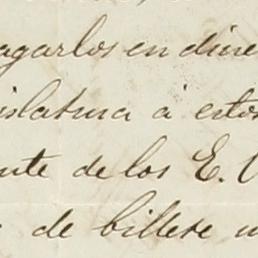 agarlos en dine
islatura á estos
nte de los E. U
de billete u